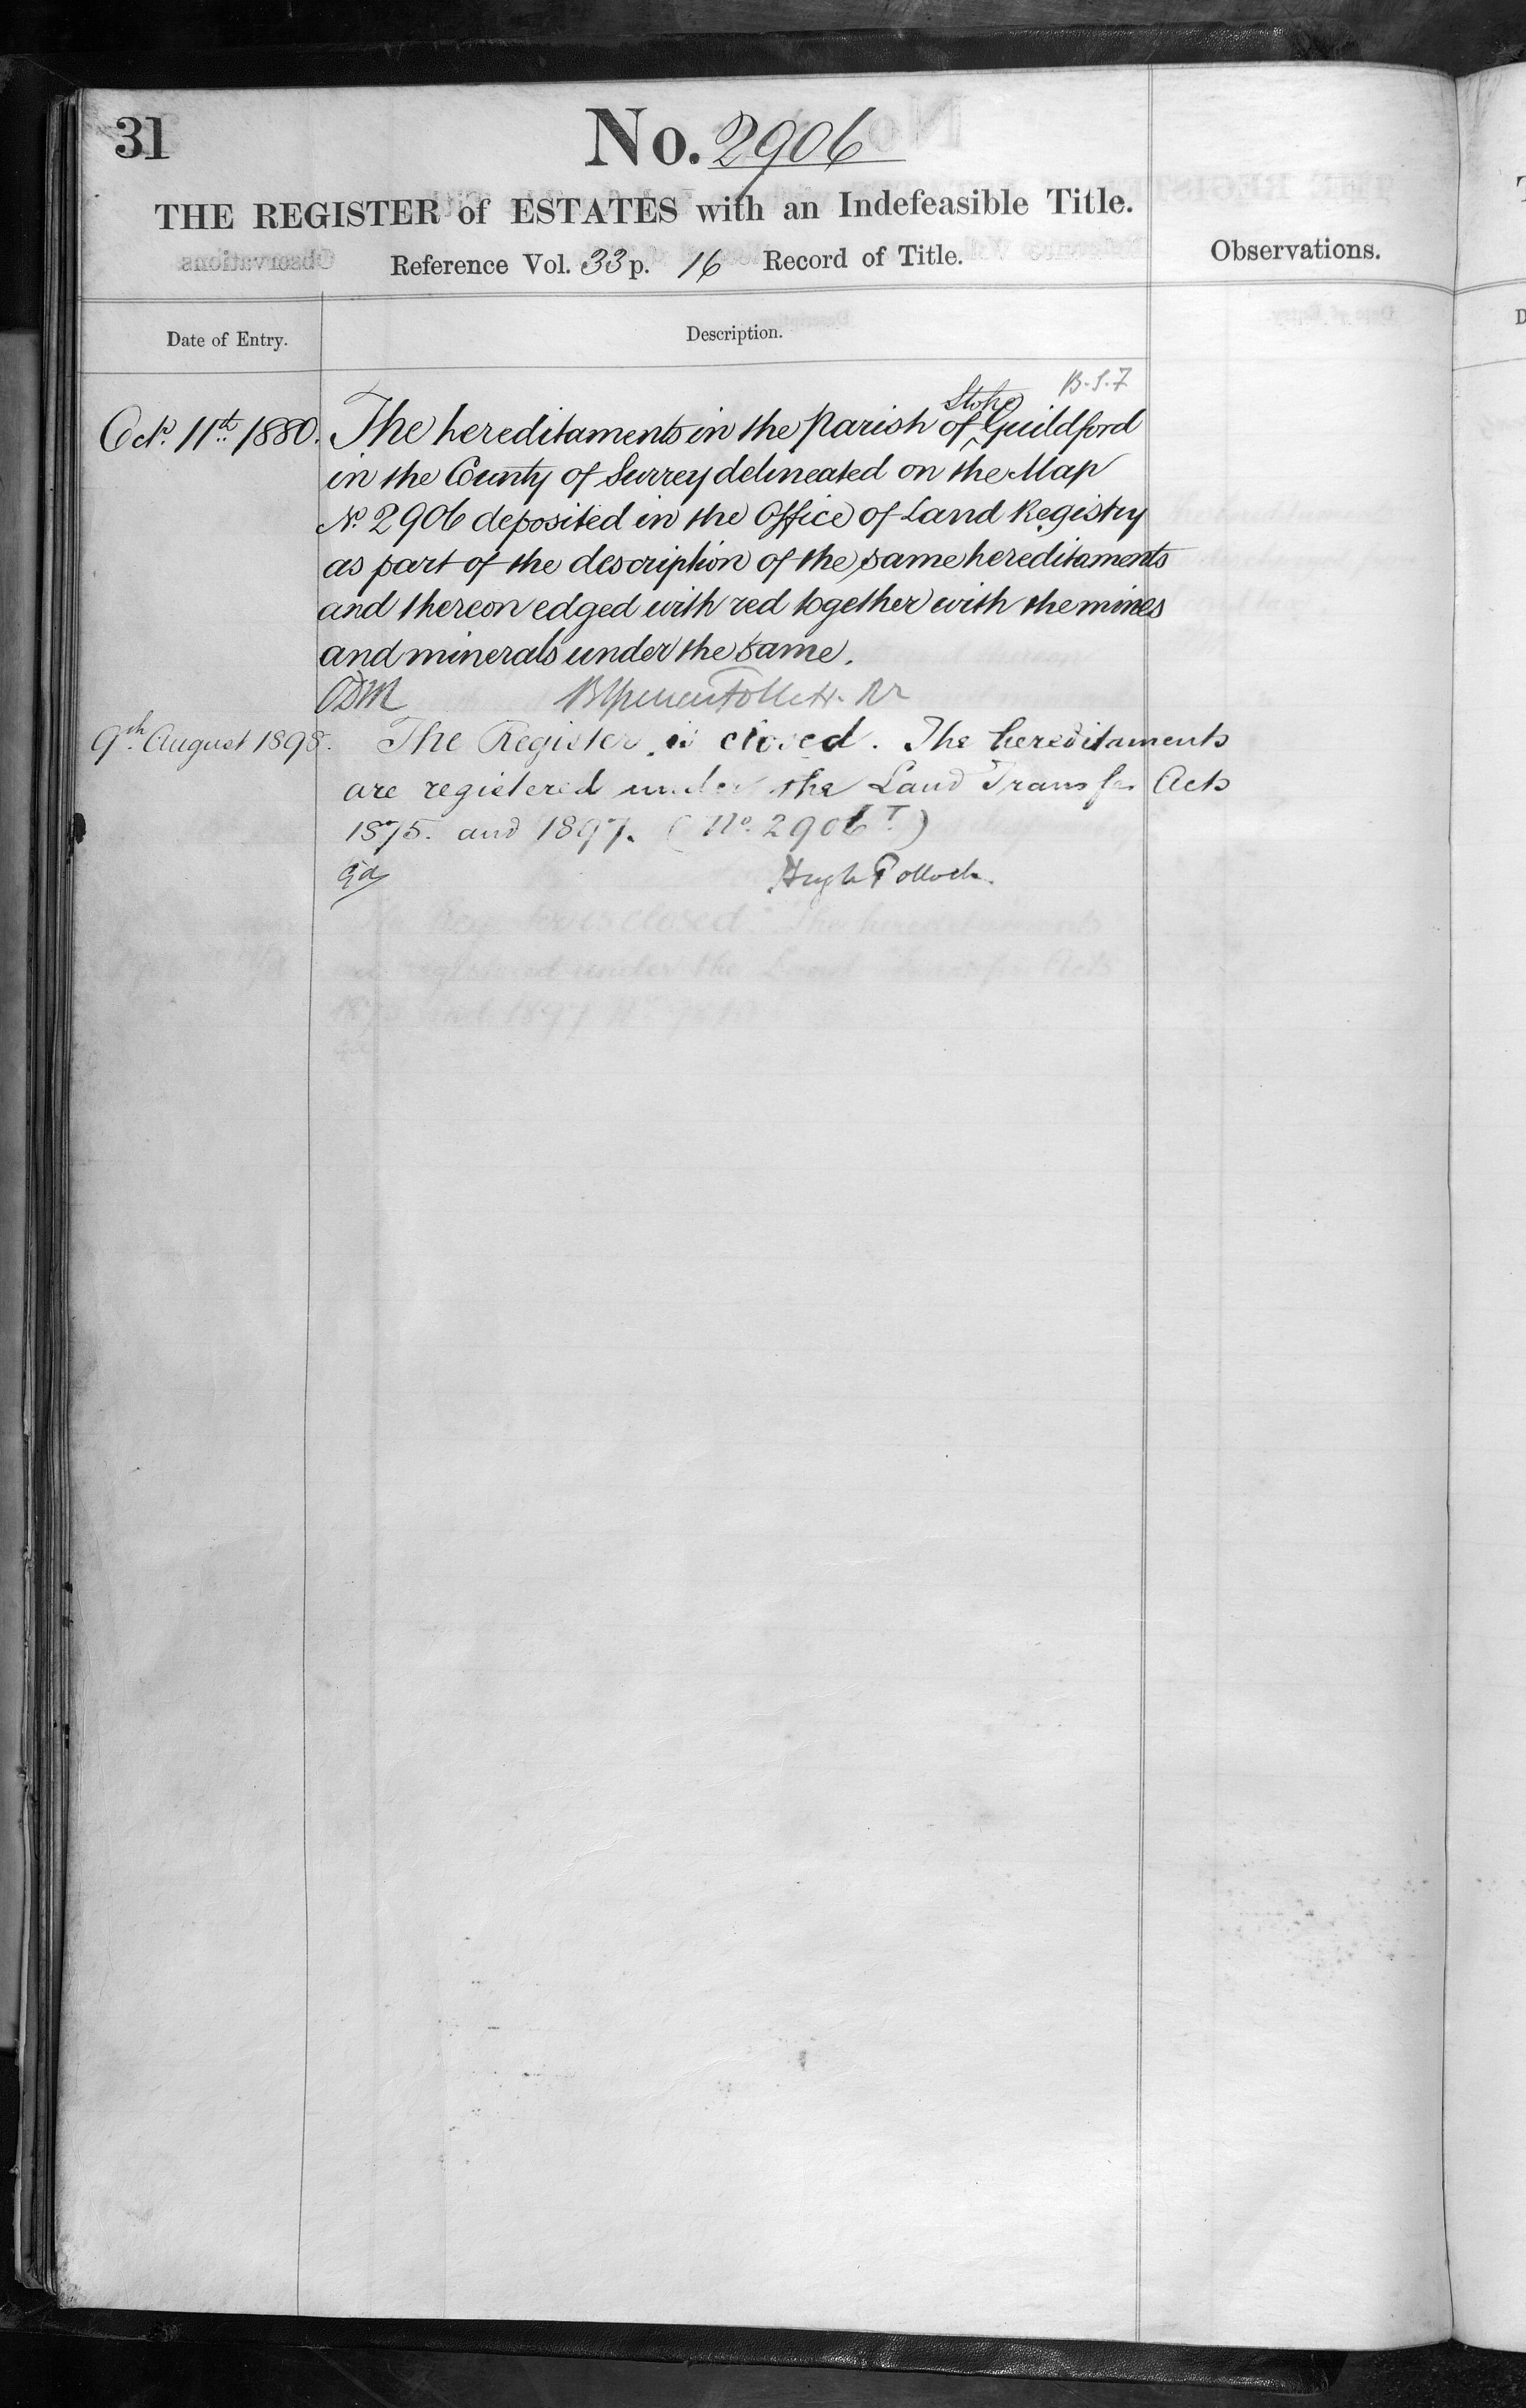 31
No. 2906
THE REGISTER of ESTATES with an Indefeasible Title.
Reference Vol. 33 p. 16 Record of Title.
Observations.
Date of Entry.
Description.
B.S.7
Stoke
Octr. 11th 1880. The hereditaments in the Parish of ^ Guildford
in the County of Surrey delineated on the Map
No 2906 deposited in the Office of Land Registry
as part of the description of the same hereditaments
and thereon edged with red together with the mines
and minerals under the same.
Follett
9th August 1898. The Register is closed. The hereditaments
are registered under the Land Transfer Acts
1875. and 1897. (No. 2906T.)
Hugh Pollock.